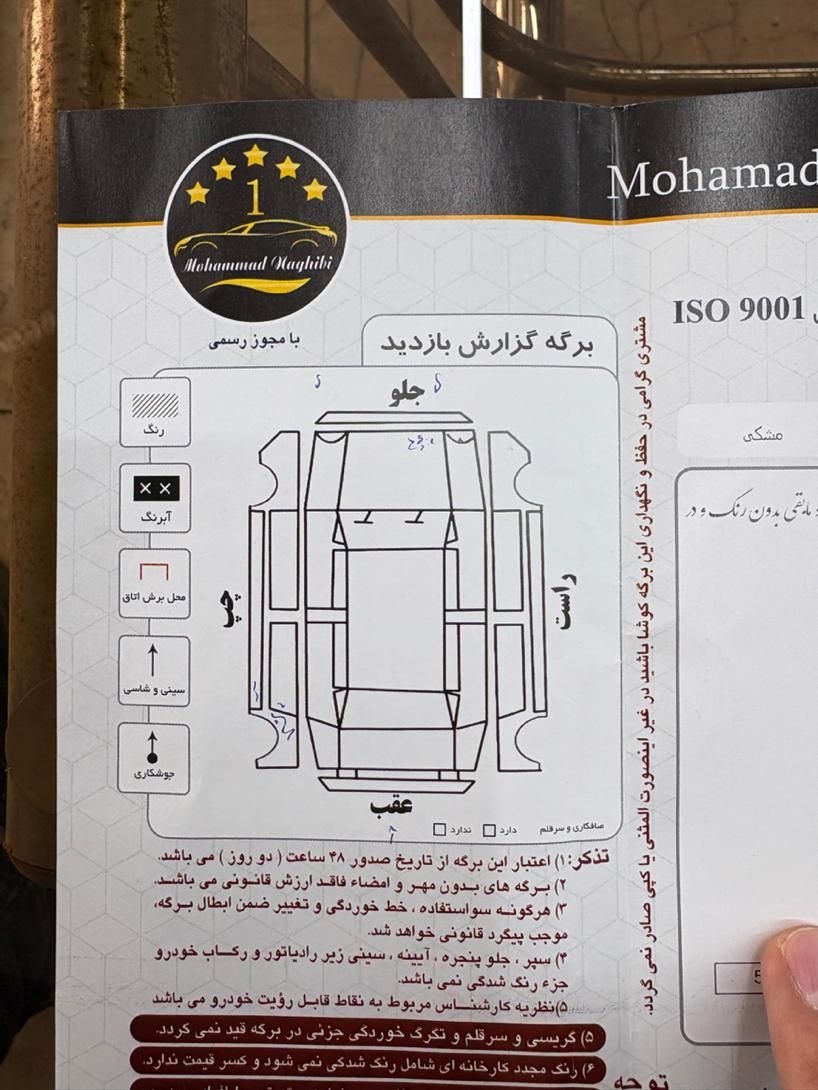 Mohamad
1
Mohammad Naghibi
با مجوز رسمی
ISO 9001
برگه گزارش بازدید
مشکی
جلو
رنگ
× ×
آبرنگ
محل برش اتاق
سینی و شاسی
جوشکاری
چپ
راست
عقب
صافکاری و سرقلم دارد ندارد
مشتری گرامی در حفظ و نگهداری این برگه کوشا باشید در غیر اینصورت المثنی یا کپی صادر نمی گردد.
مابقی بدون رنگ و در
تذکر: ۱) اعتبار این برگه از تاریخ صدور ۴۸ ساعت ( دو روز ) می باشد.
۲) برگه های بدون مهر و امضاء فاقد ارزش قانونی می باشد.
۳) هرگونه سواستفاده ، خط خوردگی و تغییر ضمن ابطال برگه،
موجب پیگرد قانونی خواهد شد.
۴) سپر ، جلو پنجره ، آیینه ، سینی زیر رادیاتور و رکاب خودرو
جزء رنگ شدگی نمی باشد.
۵)نظریه کارشناس مربوط به نقاط قابل رؤیت خودرو می باشد
۵) گریسی و سرقلم و تگرگ خوردگی جزئی در برگه قید نمی گردد.
۶) رنگ مجدد کارخانه ای شامل رنگ شدگی نمی شود و کسر قیمت ندارد.
توجه
5